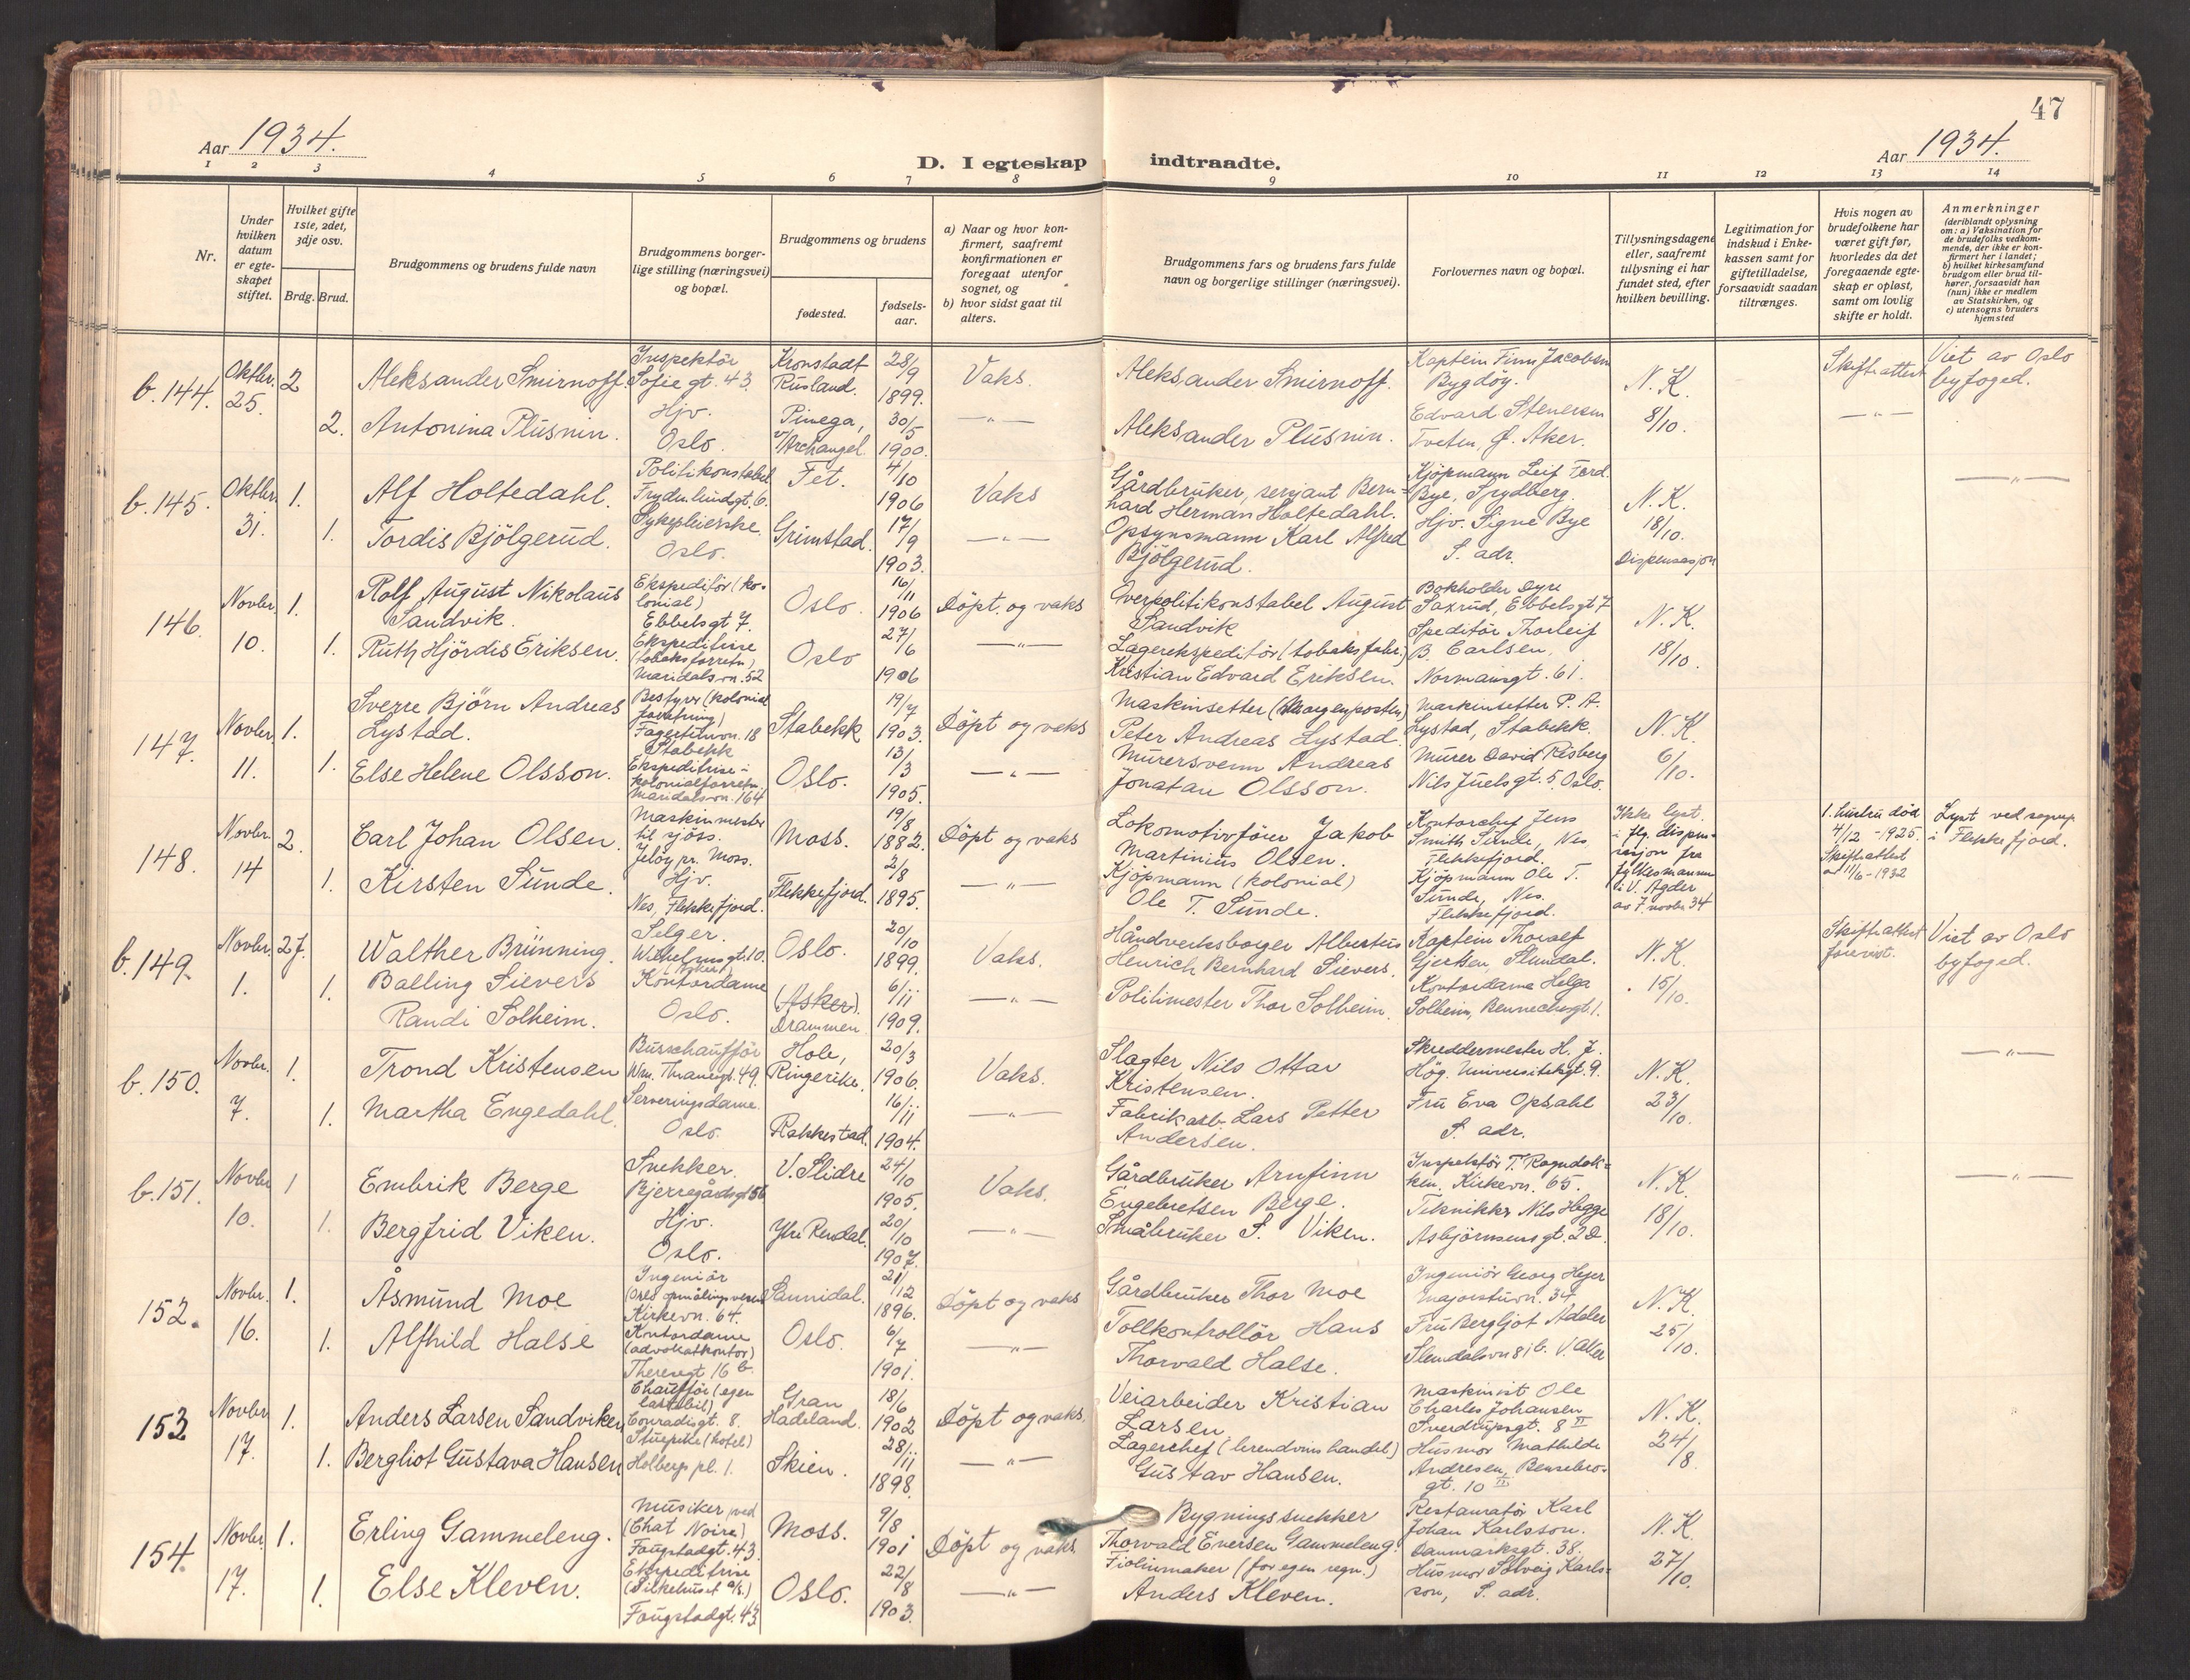 47
Aar 1934.
D. I egteskap indtraadte.
Aar 1934.
1 2 3 4 5 6 7 8 9 10 11 12 13 14
Nr.
Under hvilken datum er egteskapet stiftet.
Hvilket gifte 1ste, 2det, 3dje osv.
Brdg. Brud.
Brudgommens og brudens fulde navn
Brudgommens borgerlige stilling (næringsvei) og bopæl.
Brudgommens og brudens
fødested.
fødselsaar.
a) Naar og hvor konfirmert, saafremt konfirmationen er foregaat utenfor sognet, og
b) hvor sidst gaat til alters.
Brudgommens fars og brudens fars fulde navn og borgerlige stillinger (næringsvei).
Forlovernes navn og bopæl.
Tillysningsdagene eller, saafremt tillysning ei har fundet sted, efter hvilken bevilling.
Legitimation for indskud i Enkekassen samt for giftetilladelse, forsaavidt saadan tiltrænges.
Hvis nogen av brudefolkene har været gift før, hvorledes da det foregaaende egteskap er opløst, samt om lovlig skifte er holdt.
Anmerkninger
(deriblandt oplysning om: a) Vaksination for de brudefolks vedkommende, der ikke er konfirmert her i landet; b) hvilket kirkesamfund brudgom eller brud tilhører, forsaavidt han (hun) ikke er medlem av Statskirken, og c) utensogns bruders hjemsted
b. 144. Oktbr. 25. 2 Aleksander Smirnoff. Inspektör Sofie gt. 43. Kronstadt Rusland. 28/9 1899. Vaks. Aleksander Smirnoff. Kaptein Finn Jacobsen Bygdöy. N. K. 8/10. Skifteattest Viet av Oslo byfoged.
2. Antonina Plusnin. Hjv. Oslo. Pinega, v/Archangel. 30/5 1900. —"— Aleksander Plusnin. Edvard Stenersen Tveten, Ö. Aker. —"—
b. 145. Oktbr. 31. 1. Alf Holtedahl. Politikonstabel Frydenlundgt. 6. Fet. 4/10 1906 Vaks Gårdbruker, serjant Bernhard Herman Holtedahl. Kjöpmann Leif Ferd. Bye, Spydberg. N. K. 18/10. Dispensasjon —"—
1. Tordis Bjölgerud. Sykepleierske. Oslo. Grimstad. 17/9 1903. —"— Opsynsmann Karl Alfred Bjölgerud. Hjv. Signe Bye S. adr.
146. Novbr. 10. 1. Rolf August Nikolaus Sandvik. Ekspeditör (kolonial) Ebbelsgt 7. Oslo. 16/11 1906 Döpt. og vaks Overpolitikonstabel August Sandvik Bokholder Dyre Saxrud, Ebbelsgt 7 N. K. 18/10.
1. Ruth Hjördis Eriksen. Ekspeditrise (tobaksforretn) Maridalsvn. 52 Oslo 27/6 1906 —"— Lagerekspeditör (tobaksfabr.) Kristian Edvard Eriksen. Speditör Thorleif B. Carlsen, Normannsgt. 61.
147. Novbr. 11. 1. Sverre Björn Andreas Lystad. Bestyrer (kolonial forretning) Fagerliavn. 18 Stabekk Stabekk 19/7 1903. Döpt og vaks Maskinsetter (Morgenposten) Peter Andreas Lystad. Maskinsetter P. A. Lystad, Stabekk. N. K. 6/10.
1. Else Helene Olsson. Ekspeditrise - kolonialforretn. Maridalsvn. 164 Oslo. 13/3 1905. —"— Murersvenn Andreas Jonatan Olsson. Murer David Risberg Nils Juelsgt. 5, Oslo.
148. Novbr. 14 2. Carl Johan Olsen. Maskinmester til sjöss. Jelöy pr. Moss. Moss. 19/8 1882. Döpt og vaks Lokomotivförer Jakob Martinius Olsen. Kontorchef Jens Smith Sunde, Nes, Flekkefjord. Ikke lyst. i flg. dispensasjon fra fylkesmannen i V. Agder av 7 novbr. 34 1. hustru död 4/12 - 1925. Skifteattest av 11/6 - 1932 Lyst ved sognep. i Flekkefjord.
1. Kirsten Sunde. Hjv. Nes, Flekkefjord. Flekkefjord. 2/8 1895. —"— Kjöpmann (kolonial) Ole T. Sunde. Kjöpmann Ole T. Sunde, Nes. Flekkefjord.
b. 149. Novbr. 1. 2. Walther Brünning Balling Sievers Selger. Wilhelmsgt. 10. Oslo. 20/10 1899. Vaks. Håndverksborger Albertus Henrich Bernhard Sievers. Kaptein Thoralf Gjertsen, Slemdal. N. K. 15/10. Skifteattest forevist. Viet av Oslo byfoged.
1. Randi Solheim. Kontordame Oslo. (Asker). Drammen. 6/11 1909. —"— Politimester Thor Solheim. Kontordame Helga Solheim, Bennechesgt. 1.
b. 150. Novbr. 7. 1. Trond Kristensen Busschaufför Wm. Thranesgt. 49. Hole, Ringerike. 20/3 1906. Vaks. Slagter Nils Ottar Kristensen. Skreddermester H. J. Hög. Universitetsgt. 9. N. K. 23/10. —"—
1. Martha Engedahl. Serveringsdame. Oslo. Rakkestad. 16/11 1904. —"— Fabrikarb. Lars Petter Andersen. Fru Eva Opsahl S. adr.
b. 151. Novbr 10. 1 Embrik Berge Snekker. Bjerregårdsgt 56 V. Slidre 24/10 1905. Vaks. Gårdbruker Arnfinn Engebretsen Berge. Inspektör T. Rogndokken. Kirkevn. 65. N. K. 18/10. —"—
1. Bergfrid Viken. Hjv. Oslo. Ytre Rendal. 20/10 1907. —"— Småbruker S. Viken. Tekniker Nils Hegge Asbjörnsensgt. 2 D.
152. Novbr. 16. 1. Åsmund Moe Ingeniör (Oslo opmålingsvesen) Kirkevn. 64. Sannidal. 21/12 1896. Döpt og vaks Gårdbruker Thor Moe Ingeniör Georg Hejer Majorstuvn. 34 N. K. 25/10.
1. Alfhild Halse Kontordame (advokatkontor) Theresegt 16 b. Oslo. 6/7 1901. —"— Tollkontrollör Hans Thorvald Halse. Fru Bergljot Adeler Slemdalsvn 81 b. V. Aker
153. Novbr 17. 1. Anders Larsen Sandviken Chaufför (egen lastebil) Conradisgt. 8. Gran Hadeland. 18/6 1902 Döpt og vaks. Veiarbeider Kristian Larsen. Maskinist Ole Charles Johansen Sverdrupsgt. 8 II N. K. 24/8.
1. Bergliot Gustava Hansen Stuepike (hotel) Holbergs pl. 1. Skien. 28/11 1898. —"— Lagerchef (brendevinshandel) Gustav Hansen. Husmor Mathilde Andresen, Bentsebrogt. 10 II
154. Novbr. 17. 1. Erling Gammeleng. Musiker ved (Chat Noire) Fougstadgt. 43. Moss. 9/8 1901 Döpt og vaks. Bygningssnekker Thorvald Eversen Gammeleng. Restauratör Karl Johan Karlsson. Danmarksgt. 38. N. K. 27/10.
1. Else Kleven. Ekspeditrise (Silkehuset a/s.) Fougstadgt. 43 Oslo. 22/8 1903. —"— Fiolinmaker (for egen regn.) Anders Kleven. Husmor Solveig Karlsson, S. adr.